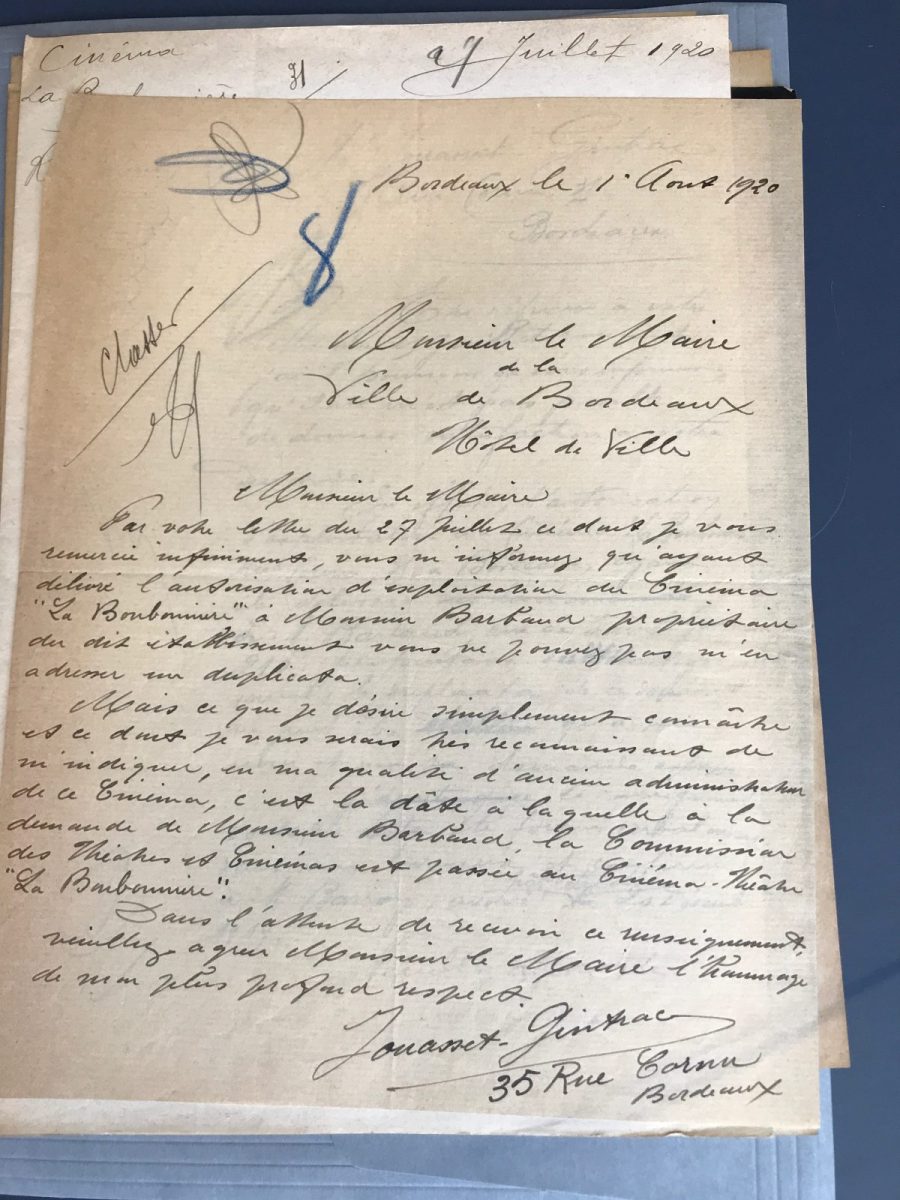 Cinéma
27 Juillet 1920
31
La
Bordeaux le 1r Aout 1920
8
classer
Monsieur le Maire
de la
Ville de Bordeaux
Hôtel de Ville
Monsieur le Maire
Par votre lettre du 27 Juillet ce dont je vous
remercie infiniment, vous m'informez qu'ayant
délivré l'autorisation d'exploitation du Cinéma
"La Bonbonnière" à Monsieur Barbaud propriétaire
du dit établissement vous ne pouvez pas m'en
adresser un duplicata.
Mais ce que je désire simplement connaître
et ce dont je vous serais très reconnaissant de
m'indiquer, en ma qualité d'ancien administrateur
de ce Cinéma, c'est la dâte à laquelle à la
demande de Monsieur Barbaud, la Commission
des Théatres et Cinémas est passée au Cinéma-Théâtre
"La Bonbonnière".
Dans l'attente de recevoir ce renseignement,
veuillez agréer Monsieur le Maire l'hommage
de mon plus profond respect
Jouasset-Gintrac
35 Rue Cornu
Bordeaux